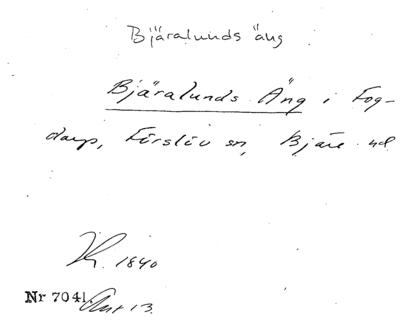 Bjäralunds äng
Bjäralunds Äng i Fog-
darp, Förslöv sn, Bjäre hd
K. 1840
Nr 7041 Akt 13.